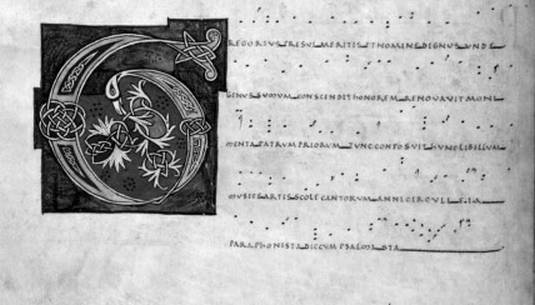 GREGORIUS PRESUL MERITIS ET NOMINE DIGNUS UNDE
GENUS SUMUM CONSCENDIT HONOREM RENOVAVIT MONI
MENTA PATRUM PRIORUM TUNC CONPOSUIT HUNC LIBELLUM
MUSICE ARTIS SCOLE CANTORUM ANNI CIRCULI
PARAPHONISTA DIC CUM PSALMISTA